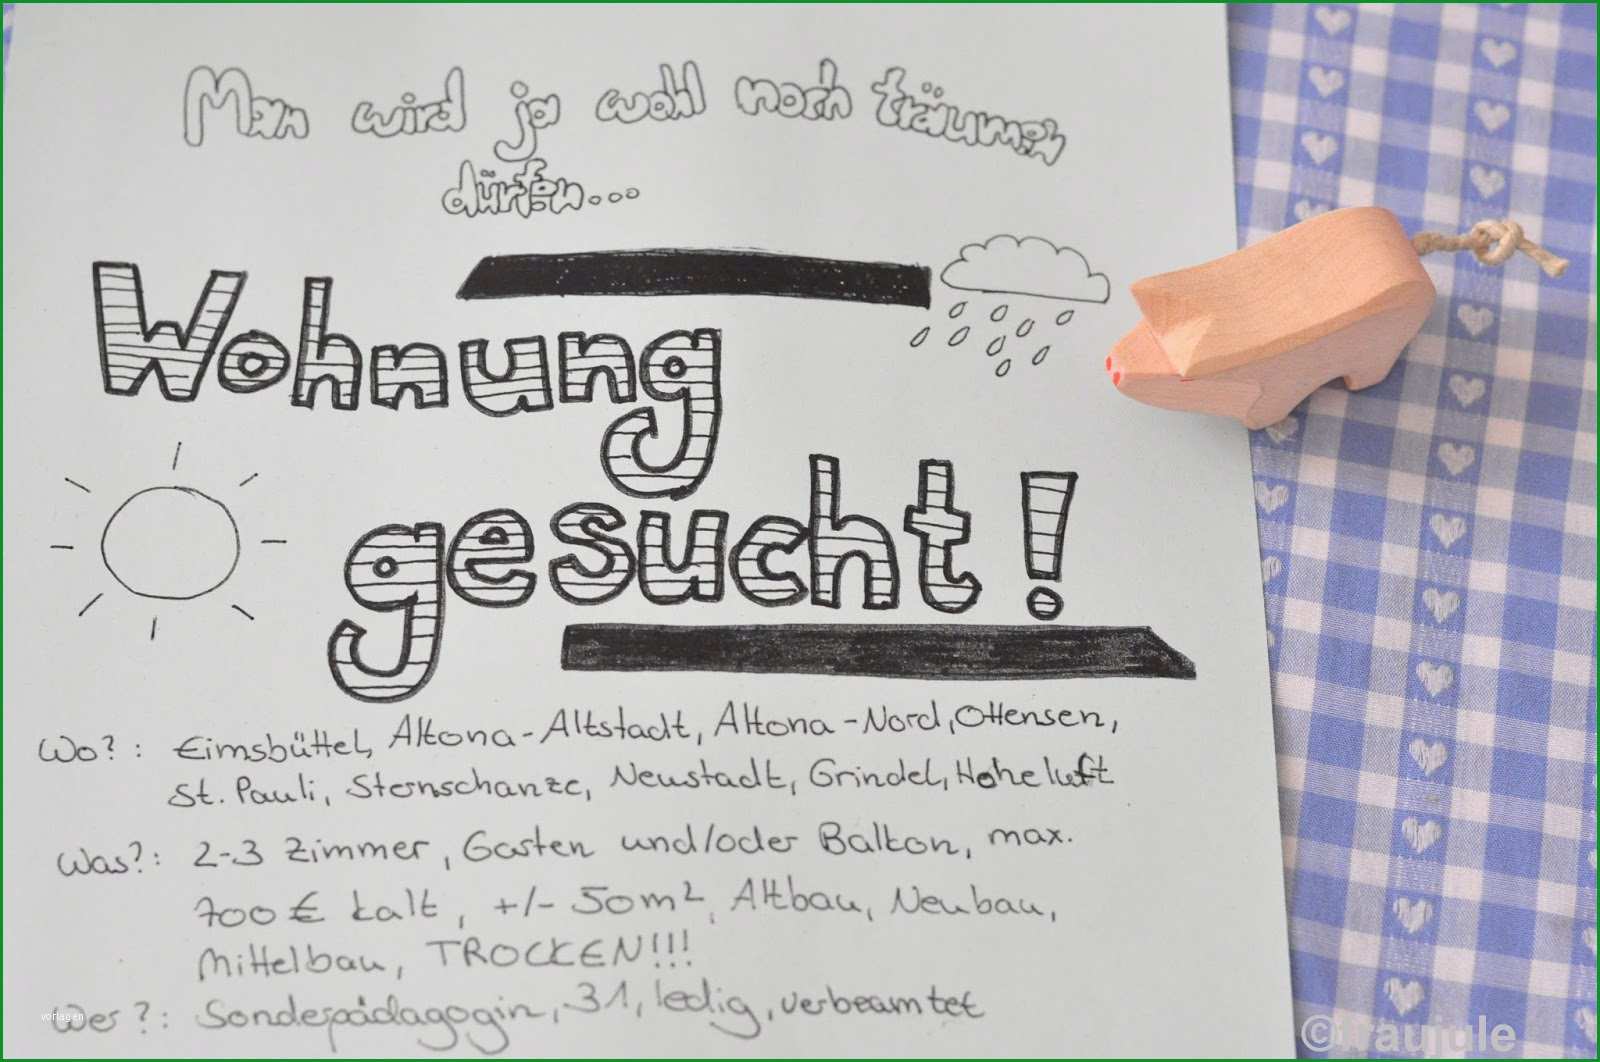 Man wird ja wohl noch träumen
dürfen...
Wohnung
gesucht!
Wo?: Eimsbüttel, Altona-Altstadt, Altona-Nord, Ottensen,
St. Pauli, Sternschanze, Neustadt, Grindel, Hoheluft
Was?: 2-3 Zimmer, Garten und/oder Balkon, max.
700 € kalt, +/- 50m², Altbau, Neubau,
Mittelbau, TROCKEN!!!
Wer?: Sonderpädagogin, 31, ledig, verbeamtet
vorlagen
©fraujule